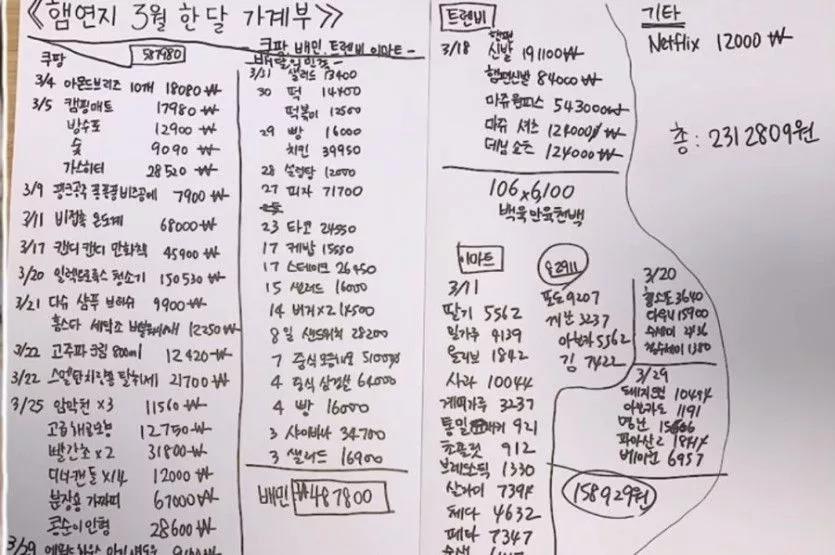 《햄연지 3월 한달 가계부》
쿠팡 587980
3/4 아몬드브리즈 10개 18080₩
3/5 캠핑매트 17980₩
방수포 12900₩
숯 9090₩
가스히터 28520₩
3/9 7900₩
3/11 비접촉 온도계 68000₩
3/17 캔디 캔디 만화책 45900₩
3/20 일렉트로룩스 청소기 150530₩
3/21 다슈 샴푸 브러쉬 9900₩
홈스타 세탁조 12250₩
3/22 고주파크림 800ml 12420₩
3/22 21700₩
3/25 암막천 x3 11560₩
12750₩
빨간초 x2 31800₩
디너캔들 x14 12000₩
분장용 67000₩
콩순이인형 28600₩
3/29
쿠팡, 배민, 트렌비 이마트
3/31 샐러드 13400
30 떡 14400
떡볶이 12500
29 빵 16000
치킨 39950
28 설렁탕 12000
27 피자 71700
23 타코 24550
17 케밥 15550
17 스테이크 26450
15 샐러드 16000
14 버거x2 14500
8일 샌드위치 28200
7 중식 51000
4 중식 64000
4 빵 16000
3 샤이바나 34700
3 샐러드 16900
배민 ₩487800
트렌비
3/18 햄편 신발 191100₩
햄편신발 84000₩
마쥬원피스 543000₩
마쥬 셔츠 124000₩
데님쇼츠 124000₩
106x6,100
백육만육천백
이마트
3/11
딸기 5562
밀가루 4139
올리브 1842
사라 10044
계피가루 3237
921
초콜릿 912
브레드스틱 1330
체다 4632
페타 7347
포도 9207
계란 3237
아보카도 5562
김 7422
3/20
3640
다우니 15900
수세미
1380
3/29
아보카도 1191
명란
파마산2
베이컨 6957
158929원
기타
Netflix 12000₩
총 : 2312809원